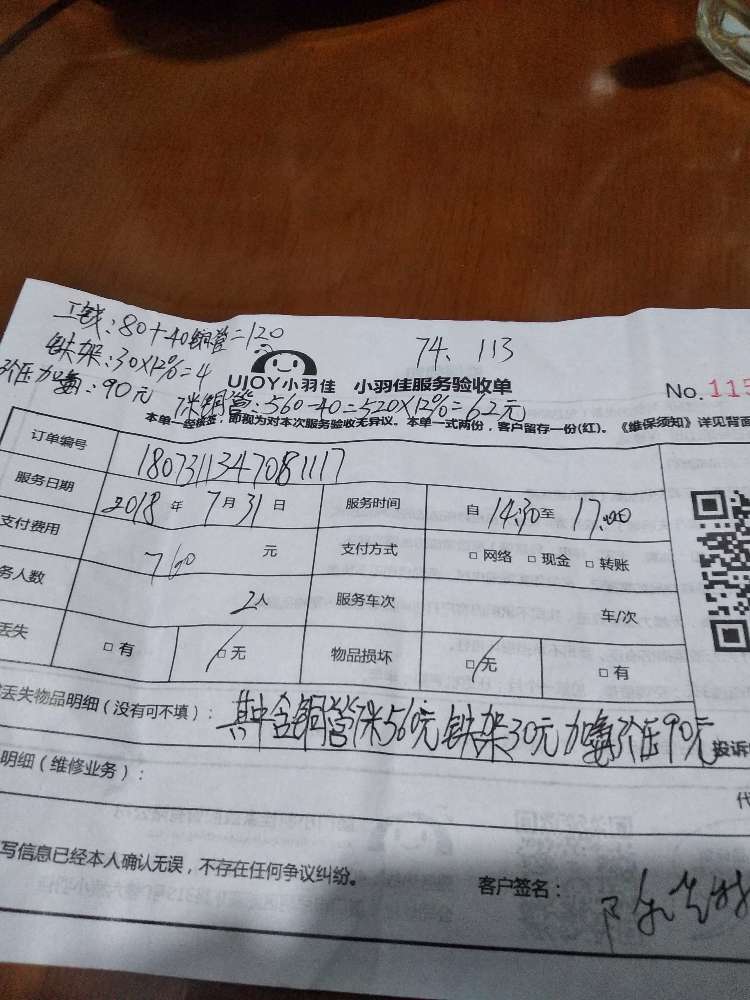 工钱：80+40铜管=120
74、113
铁架：30×12%=4
加氟：90元
UJOY小羽佳 小羽佳服务验收单
No.115
7米铜管：560-40=520×12%=62元
本单一经签，即视为对本次服务验收无异议。本单一式两份，客户留存一份(红)。《维保须知》详见背面
订单编号 1807311347081117
服务日期 2018年7月31日 服务时间 自14:30至17:00
支付费用 760元 支付方式 □网络 □现金 □转账
务人数 2人 服务车次 车/次
丢失 □有 □无 物品损坏 □无 □有
丢失物品明细（没有可不填）： 其中含铜管7米560元铁架30元加氟90元
投诉
明细（维修业务）：
代
写信息已经本人确认无误，不存在任何争议纠纷。
客户签名：